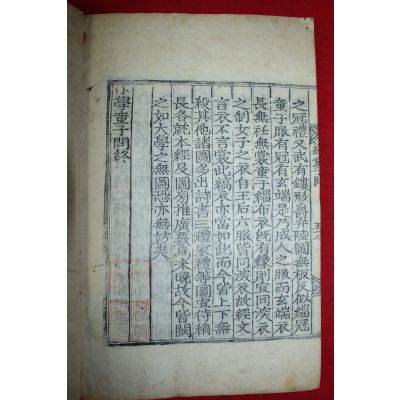 之冠禮又武有鏤形爵弁陸圖無板反似緇冠
童子服有冠有玄端是乃成人之服而玄端衣
長無衽無裳童子緇布衣旣有緣則宜同深衣
之制女子之衣自王后六服皆同深衣故經文
言衣不言裳此緇衣亦當如此而今皆上下無
殺其他諸圖多出詩書三禮家禮等圖宜待稍
長各就本經及圖旁推廣覈爲未晚故今皆闕
之如大學之無圖恐亦無妨矣
小學童子問終